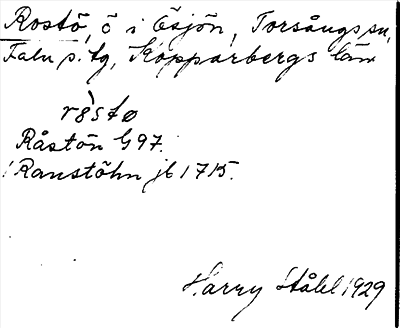 Rostö, ö i Ösjön, Torsångs sn,
Falu s. tg, Kopparbergs län
Råstön G97.
Ranstöhn jb 1715.
Harry Ståhl 1929